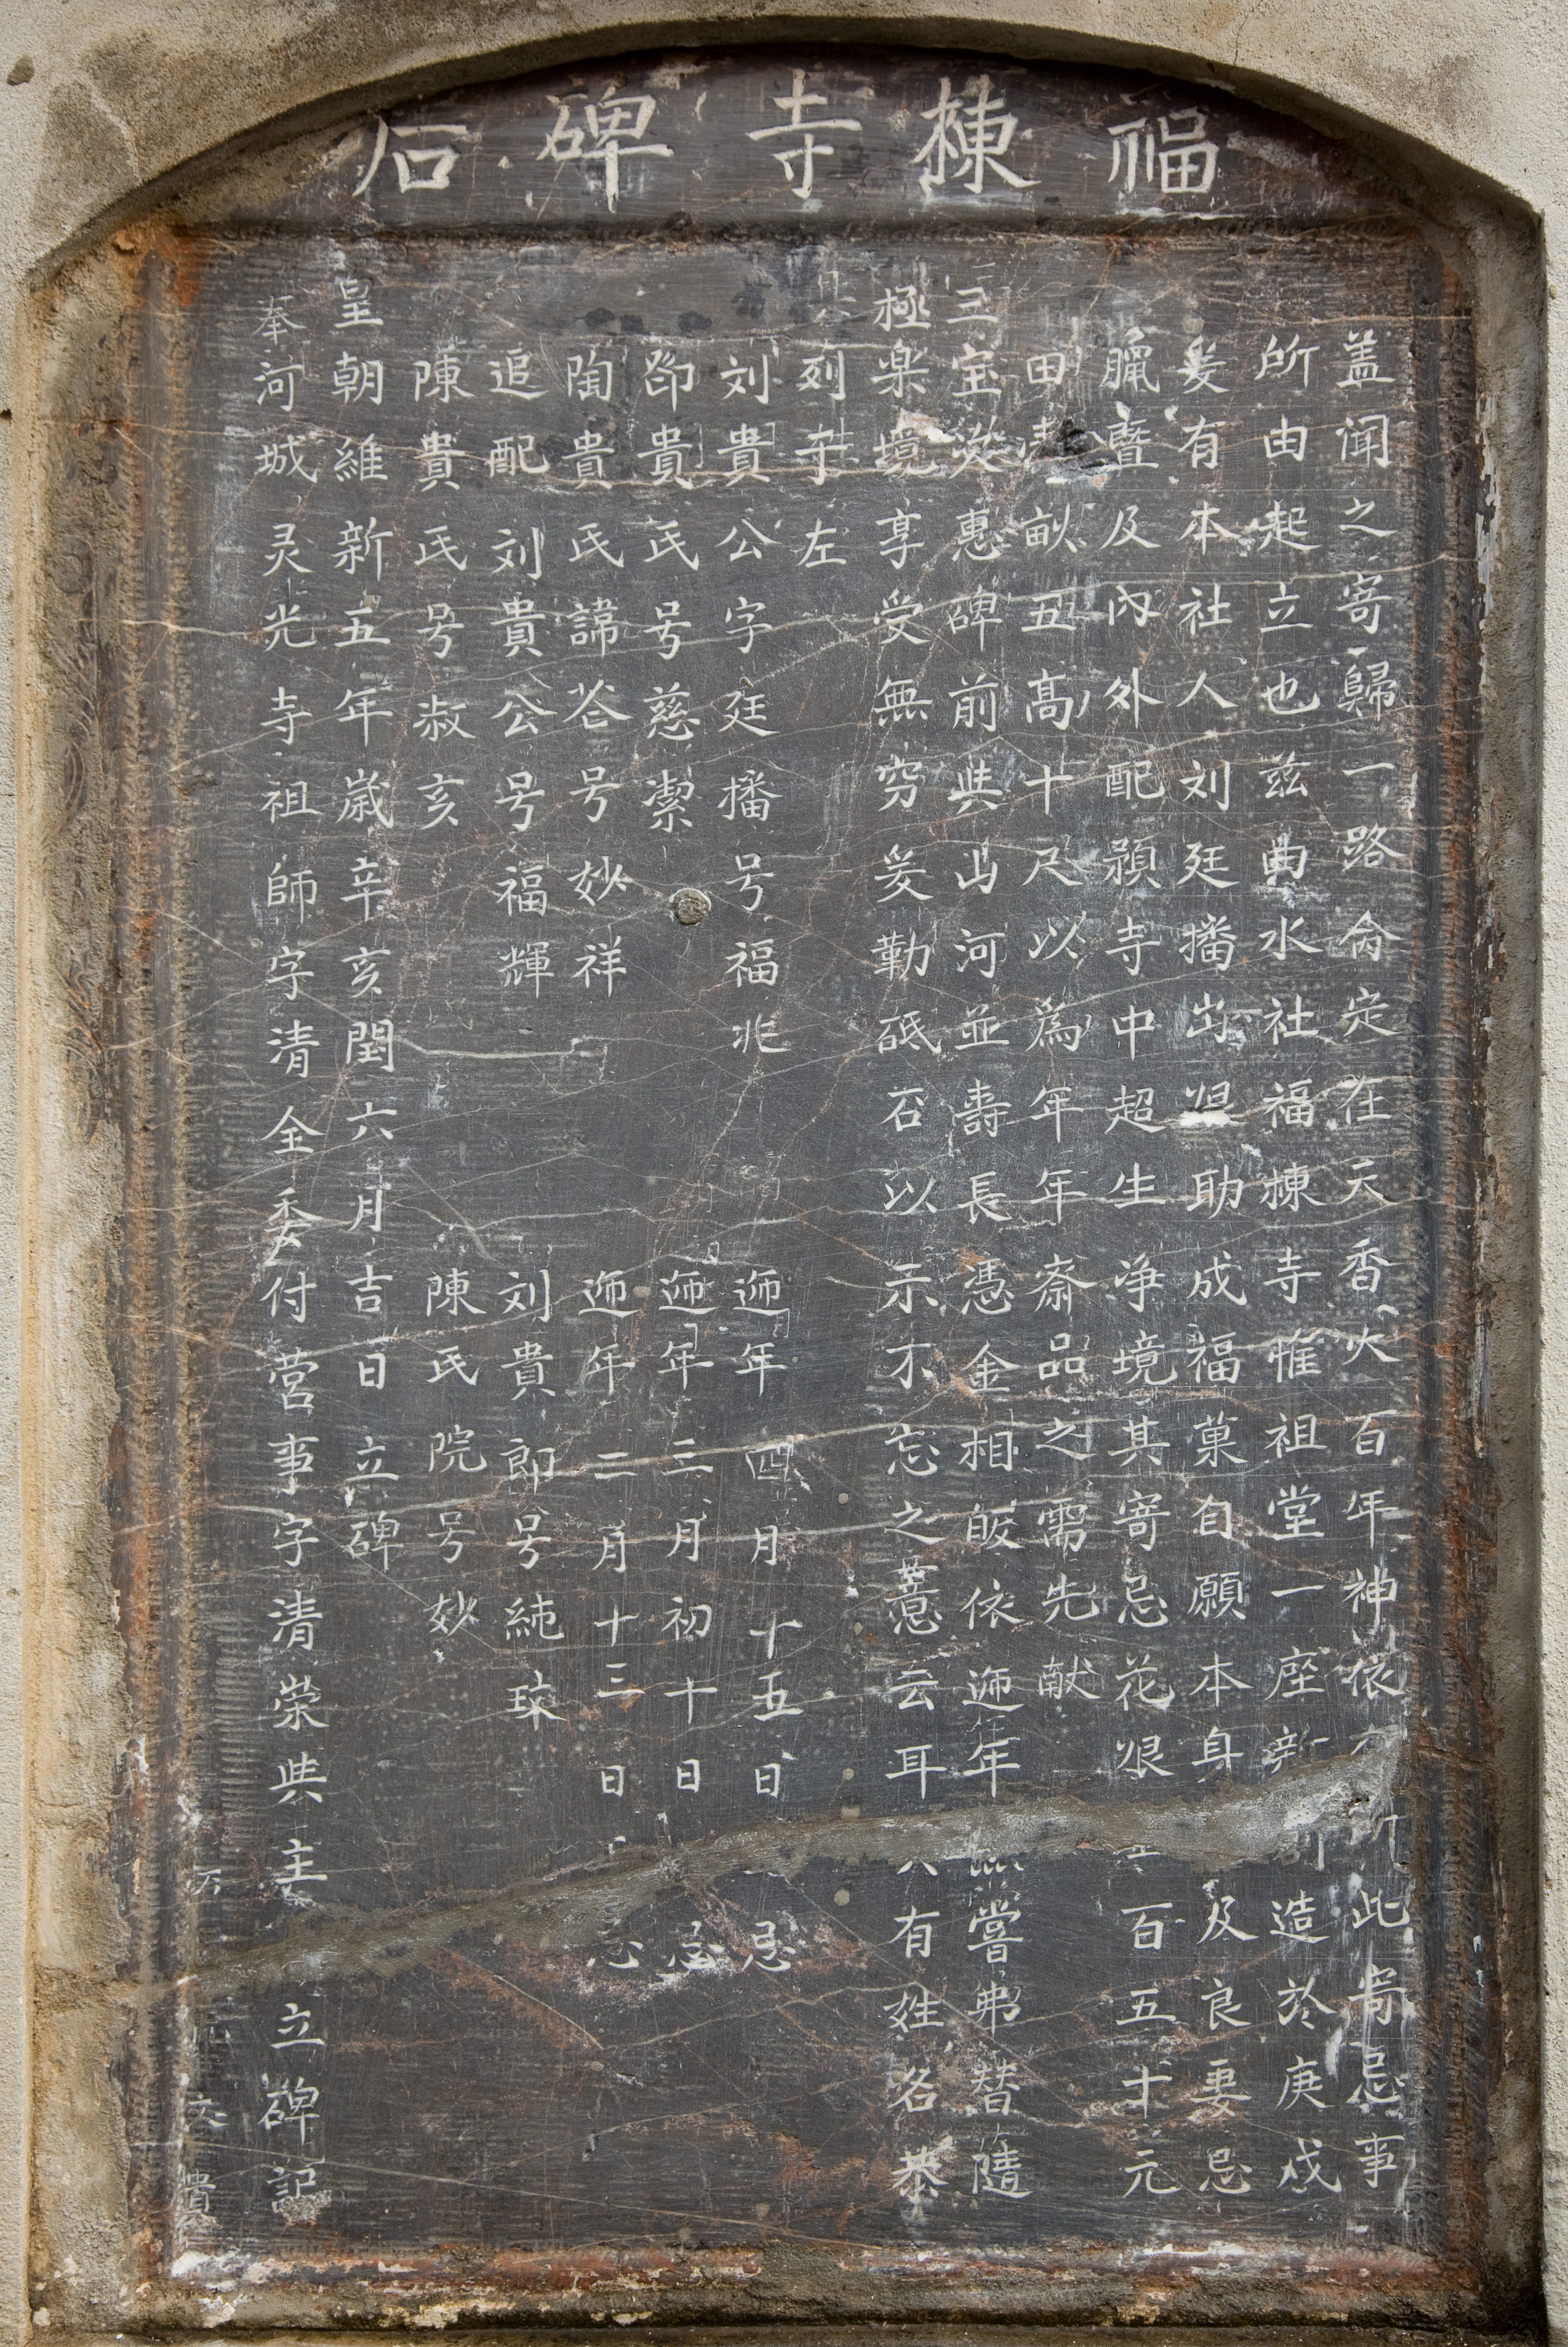 福棟寺碑石
盖闻之寄歸一路侖定在天香火百年神依所此寄忌事
所由起立也兹曲水社福棟寺惟祖堂一座新造於庚戌
爰有本社人刘廷播出助成福菓自願本身及良妻忌
臘暨及內外配預寺中超生净境其寄忌花艰百五十元
田亩五高十尺以為年年斋品之需先献
三宝惠碑前典山河並壽長憑金相皈依迊年嘗弗替隨
極楽境享受無穷爰勒砥石以示不忘之薏云耳有姓名恭
列于左
刘貴公字廷播号福兆 迊年四月十五日忌
郃貴氏号慈潔 迊年三月初十日忌
陶貴氏諱谷号妙祥 迊年二月十三日忌
追配刘貴公号福輝 刘貴郎号純琰
陳貴氏号叔亥 陳氏院号妙
皇朝維新五年歳辛亥閏六月吉日立碑
奉河城灵光寺祖師字清全委付营事字清荣典主立碑記